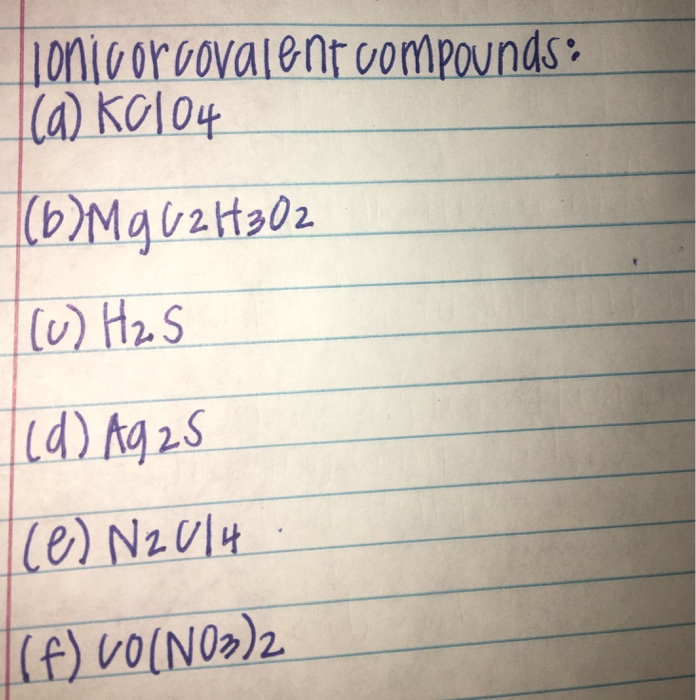 Ionic or covalent compounds:
(a) KClO4
(b) MgC2H3O2
(c) H2S
(d) Ag2S
(e) N2Cl4
(f) CO(NO3)2